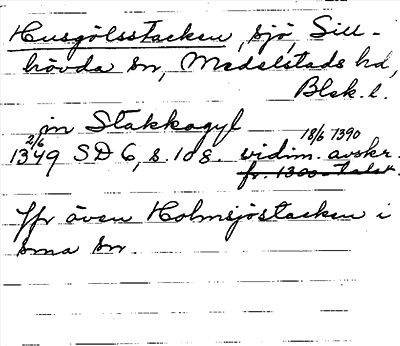 Husgölsstacken, sjö, Sill-
hövda sn, Medelstads hd,
Blek. l.
in Stakkagyl
2/6 18/6 1390
1349 SD 6, s. 108. vidim. avskr.
fr. 1300-talet.
Jfr även Holmsjöstacken i
sma sn.